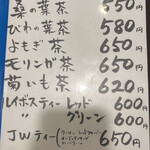 桑の葉茶 650
びわの葉茶 580
よもぎ茶 650
モリンガ茶 650
菊いも茶 620
ルイボスティー レッド 600
〃 グリーン 600
JWティー 650